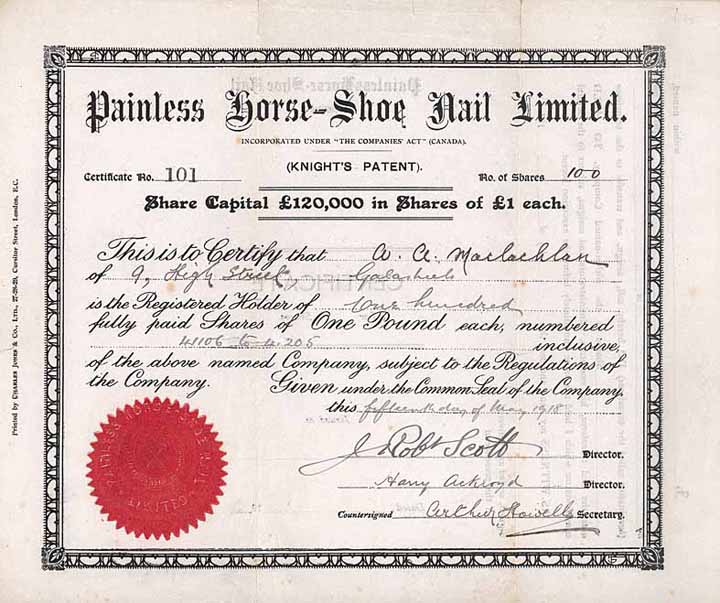 Painless Horse-Shoe Nail Limited.
INCORPORATED UNDER "THE COMPANIES' ACT" (CANADA).
(KNIGHT'S PATENT).
Certificate No. 101 No. of Shares 100
Share Capital £120,000 in Shares of £1 each.
This is to Certify that A. A. Maclachlan
of 9, High Street, Galashiels
is the Registered Holder of One hundred
fully paid Shares of One Pound each, numbered
4106 to 4205 inclusive,
of the above named Company, subject to the Regulations of
the Company. Given under the Common Seal of the Company,
this fifteenth day of May 1918
J Robt Scott Director.
Harry Ackroyd Director.
Countersigned Arthur Howells Secretary.
PAINLESS HORSE-SHOE NAIL LIMITED
Printed by CHARLES JONES & CO., LTD., 27-28-29, Carline Street, London, E.C.